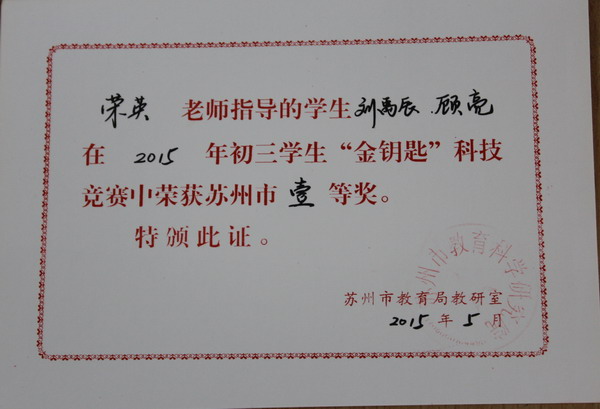 荣英 老师指导的学生刘禹辰.顾亮
在 2015 年初三学生“金钥匙”科技
竞赛中荣获苏州市 壹 等奖。
特颁此证。
苏州市教育局教研室
2015 年 5 月
州市教育科学研究院